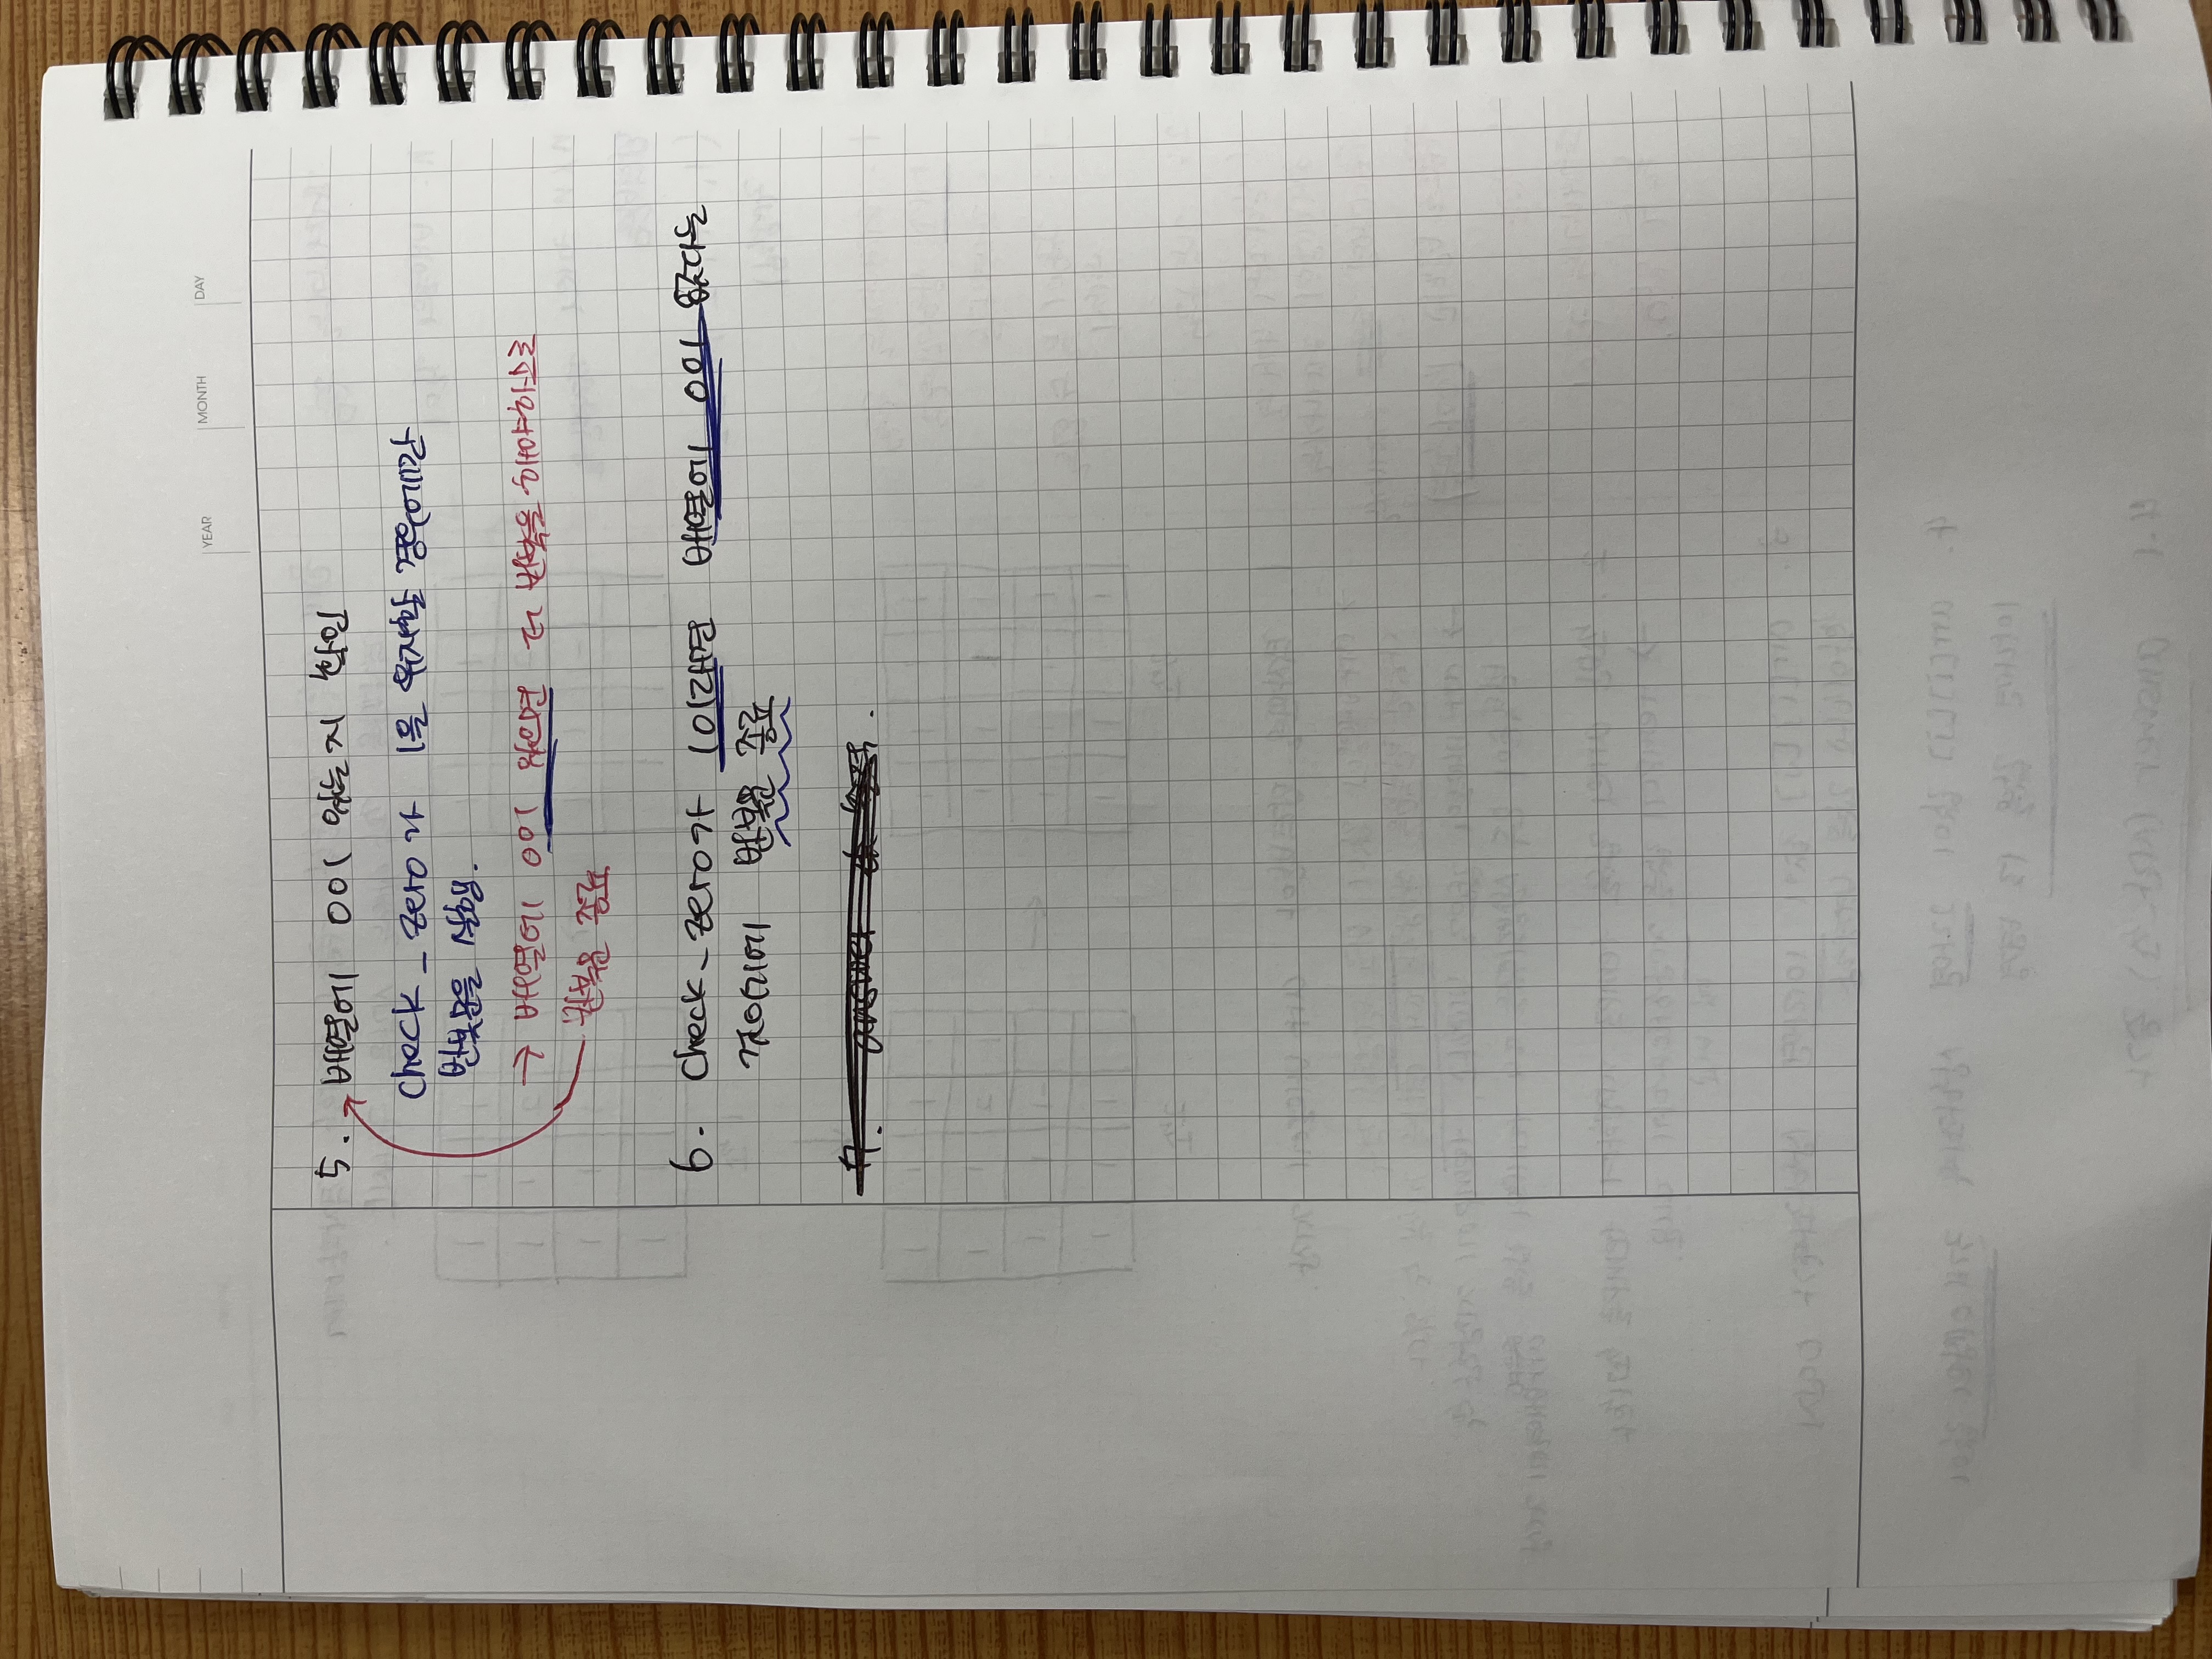 YEAR MONTH DAY
5. 배열에 0이 있는지 확인
check_zero가 1을 유지할 경우에만
반복문을 실행.
→ 배열에 0이 있으면 더 반복을 해야하므로
반복문 종료
6. check_zero가 1이라면 배열에 0이 없다는
것이기에 반복문 종료
7. answer